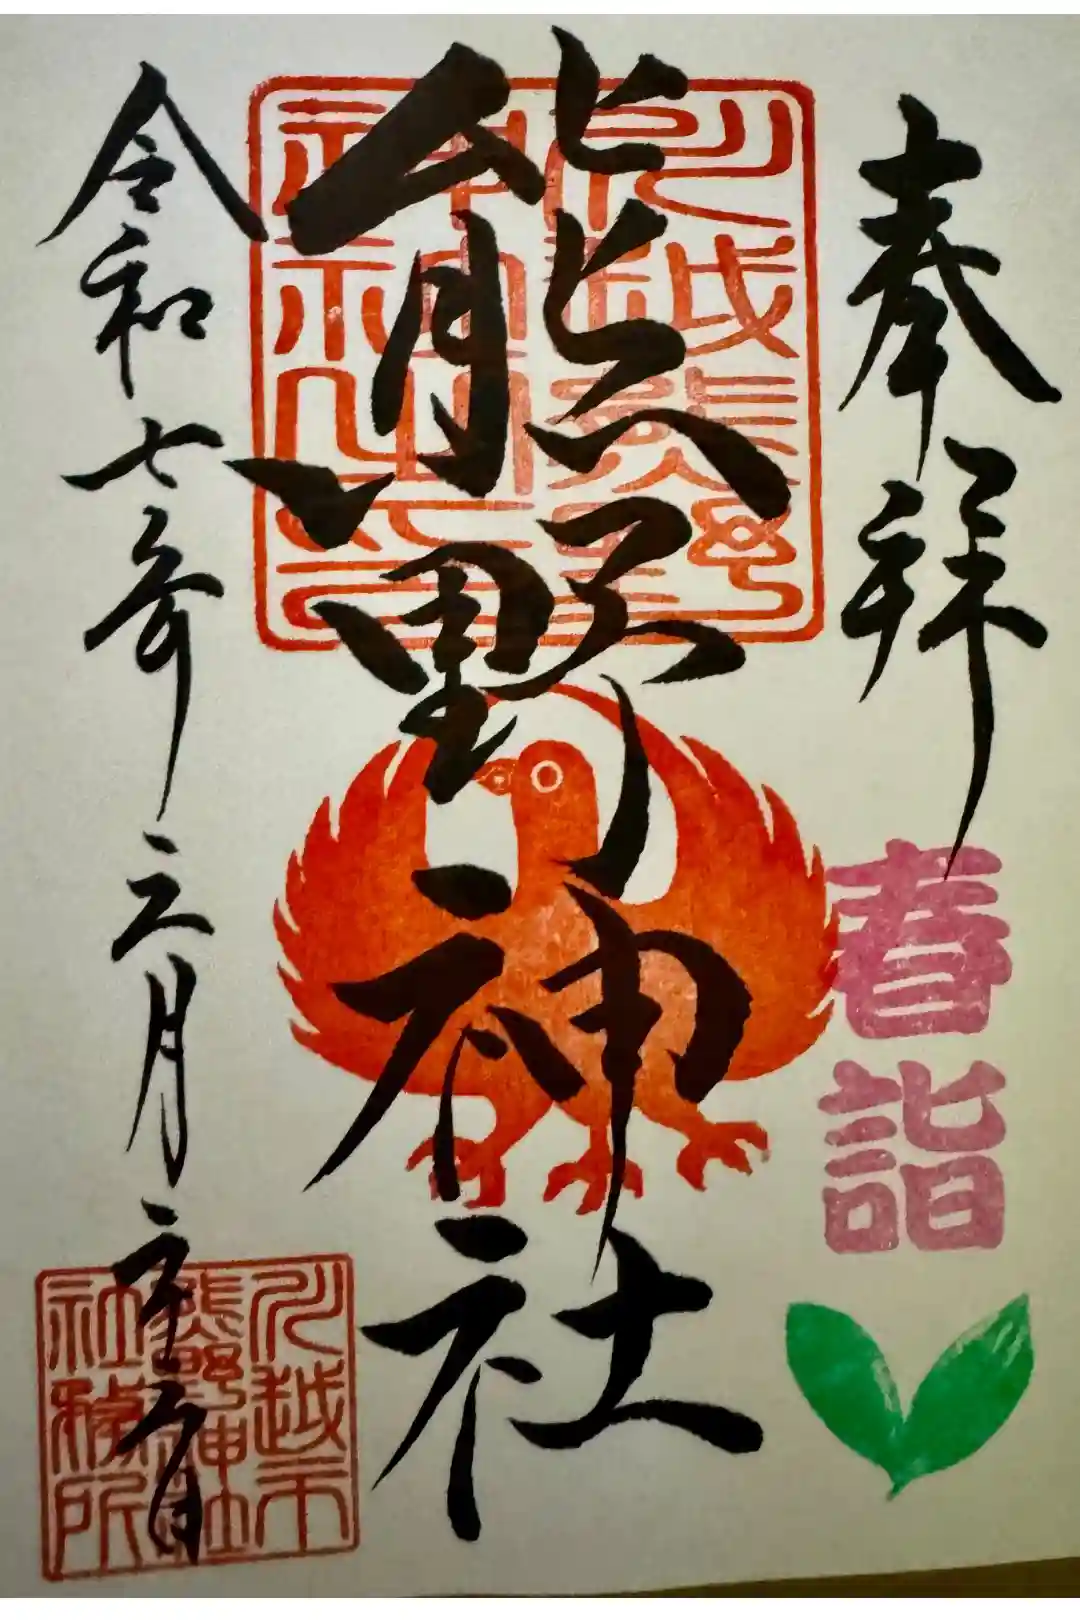 奉拝
春詣
熊野神社
令和七年三月二十一日
川越市
熊野神社
社務所